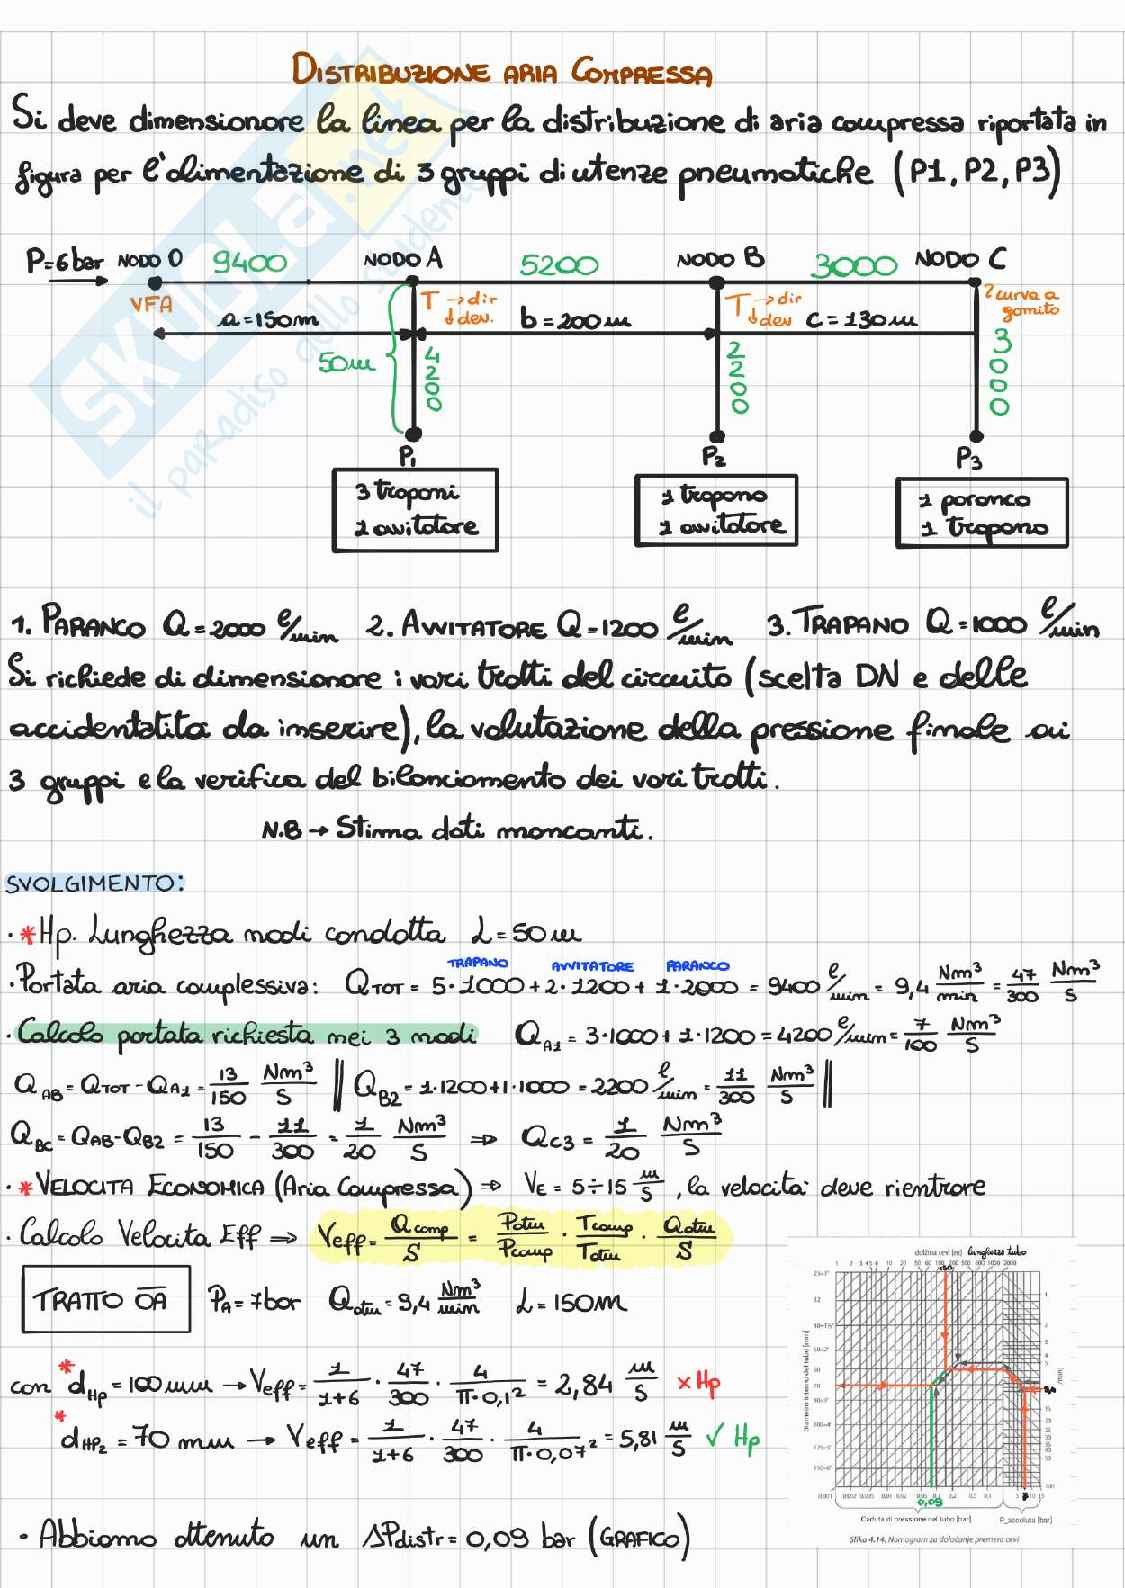 DISTRIBUZIONE ARIA COMPRESSA
Si deve dimensionare la linea per la distribuzione di aria compressa riportata in
figura per l'alimentazione di 3 gruppi di utenze pneumatiche (P1, P2, P3)
P=6bar NODO O 9400 NODO A 5200 NODO B 3000 NODO C
VFA T →dir ↓dev. T →dir ↓dev 2 curva a gomito
a=150m b=200m c=130m
50m 4200 2200 3000
P1 P2 P3
3 trapani 1 trapano 1 paranco
1 avvitatore 1 avvitatore 1 trapano
1. PARANCO Q=2000 l/min 2. AVVITATORE Q=1200 l/min 3. TRAPANO Q=1000 l/min
Si richiede di dimensionare i vari tratti del circuito (scelta DN e delle
accidentalità da inserire), la valutazione della pressione finale ai
3 gruppi e la verifica del bilanciamento dei vari tratti.
N.B → Stima dati mancanti.
SVOLGIMENTO:
· *Hp. Lunghezza nodi condotta L=50m
TRAPANO AVVITATORE PARANCO
· Portata aria complessiva: QTOT = 5·1000+2·1200+1·2000 = 9400 l/min = 9,4 Nm³/min = 47/300 Nm³/s
· Calcolo portata richiesta nei 3 nodi QA1 = 3·1000+1·1200=4200 l/min = 7/100 Nm³/s
QAB = QTOT - QA1 = 13/150 Nm³/s || QB2 = 1·1200+1·1000 = 2200 l/min = 11/300 Nm³/s ||
QBC = QAB-QB2 = 13/150 - 11/300 = 1/20 Nm³/s ⇒ QC3 = 1/20 Nm³/s
· *VELOCITA ECONOMICA (Aria Compressa) → VE = 5÷15 m/s, la velocità deve rientrare
· Calcolo Velocita Eff ⇒ Veff = Qcomp/S = Patm/Pcomp · Tcomp/Tatm · Qatm/S
TRATTO OA PA = 7bar Qatm = 9,4 Nm³/min L = 150m
con *dHp = 100mm → Veff = 1/1+6 · 47/300 · 4/π·0,1² = 2,84 m/s × Hp
*dHP2 = 70 mm → Veff = 1/1+6 · 47/300 · 4/π·0,07² = 5,81 m/s ✓ Hp
· Abbiamo ottenuto un ΔPdistr = 0,09 bar (GRAFICO)
lunghezza tubo
0,09
SKUOLA.net
il paradiso dello studente